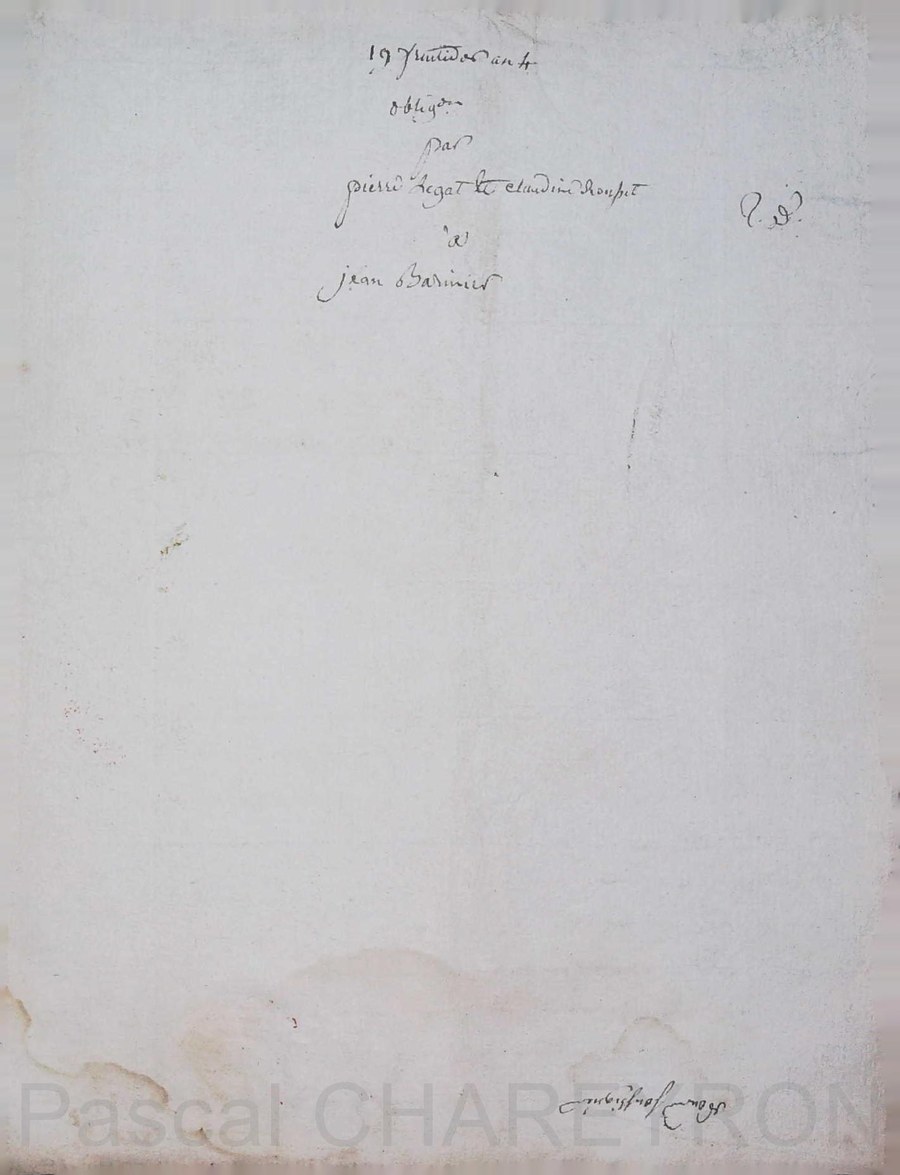 19 fructidor an 4
obligon
par
pierre Regal et claudine Rouset
a
jean Barinier
Nous soussigné
Pascal CHAREYRON